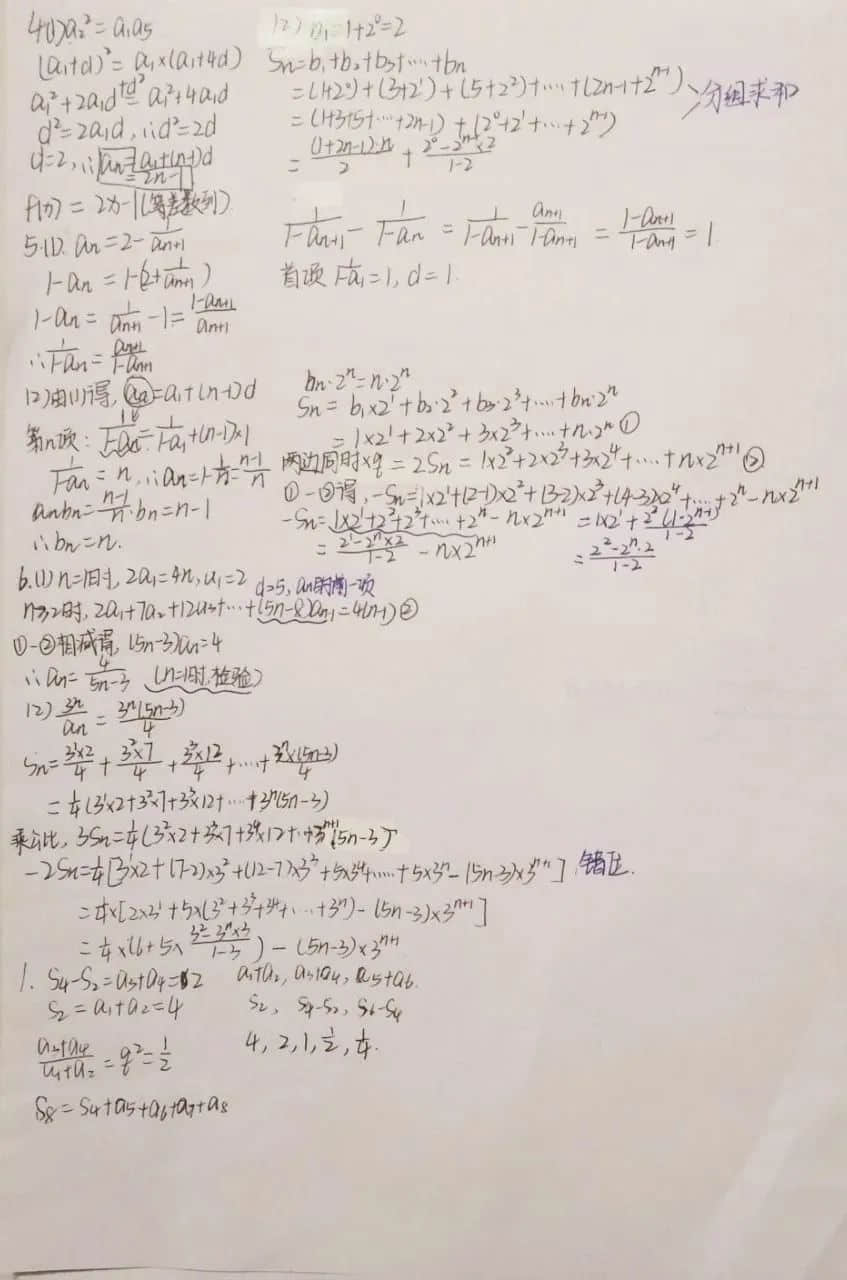 4.(1) a₂² = a₁a₅
(a₁+d)² = a₁×(a₁+4d)
a₁²+2a₁d+d² = a₁²+4a₁d
d² = 2a₁d, ∴d²=2d
d=2, ∴an = a₁+(n-1)d
= 2n-1
f(n) = 2n-1(等差数列)
(2) b₁=1+2⁰=2
Sn=b₁+b₂+b₃+…+bn
=(1+2⁰)+(3+2¹)+(5+2²)+…+(2n-1+2ⁿ⁻¹) 分组求和
=(1+3+5+…+2n-1)+(2⁰+2¹+…+2ⁿ⁻¹)
= (1+2n-1)·n/2 + (2⁰-2ⁿ⁻¹×2)/(1-2)
5.(1). an=2-1/an+1
1-an = 1-(2+1/an+1)
1-an = 1/an+1 -1 = (1-an+1)/an+1
∴1/(1-an) = an+1/(1-an+1)
1/(1-an+1) - 1/(1-an) = 1/(1-an+1) - an+1/(1-an+1) = (1-an+1)/(1-an+1) = 1.
首项 1/(1-a₁)=1, d=1.
(2)由(1)得, an=a₁+(n-1)d
第n项: 1/(1-an)=1/(1-a₁)+(n-1)×1
1/(1-an) = n, ∴an=1-1/n=(n-1)/n
anbn=(n-1)/n·bn=n-1
∴bn=n.
bn·2ⁿ=n·2ⁿ
Sn=b₁×2¹+b₂·2²+b₃·2³+…+bn·2ⁿ
=1×2¹+2×2²+3×2³+…+n·2ⁿ ①
两边同时×q=2Sn=1×2²+2×2³+3×2⁴+…+n×2ⁿ⁺¹ ②
①-②得, -Sn=1×2¹+(2-1)×2²+(3-2)×2³+(4-3)×2⁴+…+2ⁿ-n×2ⁿ⁺¹
-Sn=1×2¹+2²+2³+…+2ⁿ-n×2ⁿ⁺¹ =1×2¹+2²(1-2ⁿ⁻¹)/(1-2)
= (2¹-2ⁿ×2)/(1-2) - n×2ⁿ⁺¹ = (2²-2ⁿ·2)/(1-2)
6.(1) n=1时, 2a₁=4n, a₁=2 d=5, an的前一项
n≥2时, 2a₁+7a₂+12a₃+…+(5n-8)an-1=4(n-1) ②
①-②相减得, (5n-3)an=4
∴an=4/(5n-3) (n=1时,检验)
(2) 3ⁿ/an = 3ⁿ(5n-3)/4
Sn=3¹×2/4 + 3²×7/4 + 3³×12/4 +…+ 3ⁿ×(5n-3)/4
=1/4(3¹×2+3²×7+3³×12+…+3ⁿ(5n-3)
乘公比, 3Sn=1/4(3²×2+3³×7+3⁴×12+…+3ⁿ⁺¹(5n-3)
-2Sn=1/4[3¹×2+(7-2)×3²+(12-7)×3³+5×3⁴+…+5×3ⁿ-(5n-3)×3ⁿ⁺¹] 错位.
=1/4×[2×3¹+5×(3²+3³+3⁴+…+3ⁿ)-(5n-3)×3ⁿ⁺¹]
=1/4×(6+5×(3²-3ⁿ×3)/(1-3))-(5n-3)×3ⁿ⁺¹
1. S₄-S₂=a₃+a₄=2 a₁+a₂, a₃+a₄, a₅+a₆.
S₂=a₁+a₂=4 S₂, S₄-S₂, S₆-S₄
(a₃+a₄)/(a₁+a₂)=q²=1/2 4, 2, 1, 1/2, 1/4.
S₈=S₄+a₅+a₆+a₇+a₈